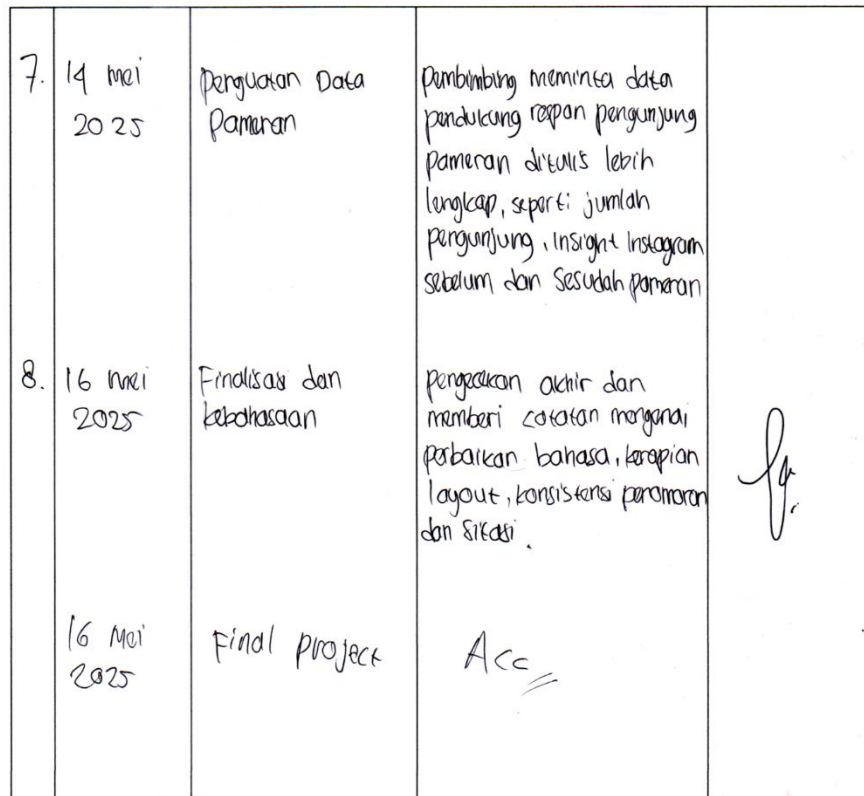 7.
14 Mei
2025
Penguatan Data
Pameran
Pembimbing meminta data
pendukung respon pengunjung
pameran ditulis lebih
lengkap, seperti jumlah
pengunjung, insight Instagram
sebelum dan sesudah pameran
8.
16 Mei
2025
Finalisasi dan
kebahasaan
pengecekan akhir dan
memberi catatan mengenai
perbaikan bahasa, kerapian
layout, konsistensi penomoran
dan sitasi.
16 Mei
2025
Final project
Acc